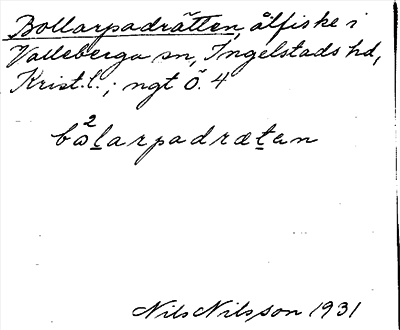 Bollarpadrätten, ålfiske i
Valleberga sn, Ingelstads hd,
Krist. l.; ngt Ö. 4
bɷ²larpadrætan
Nils Nilsson 1931